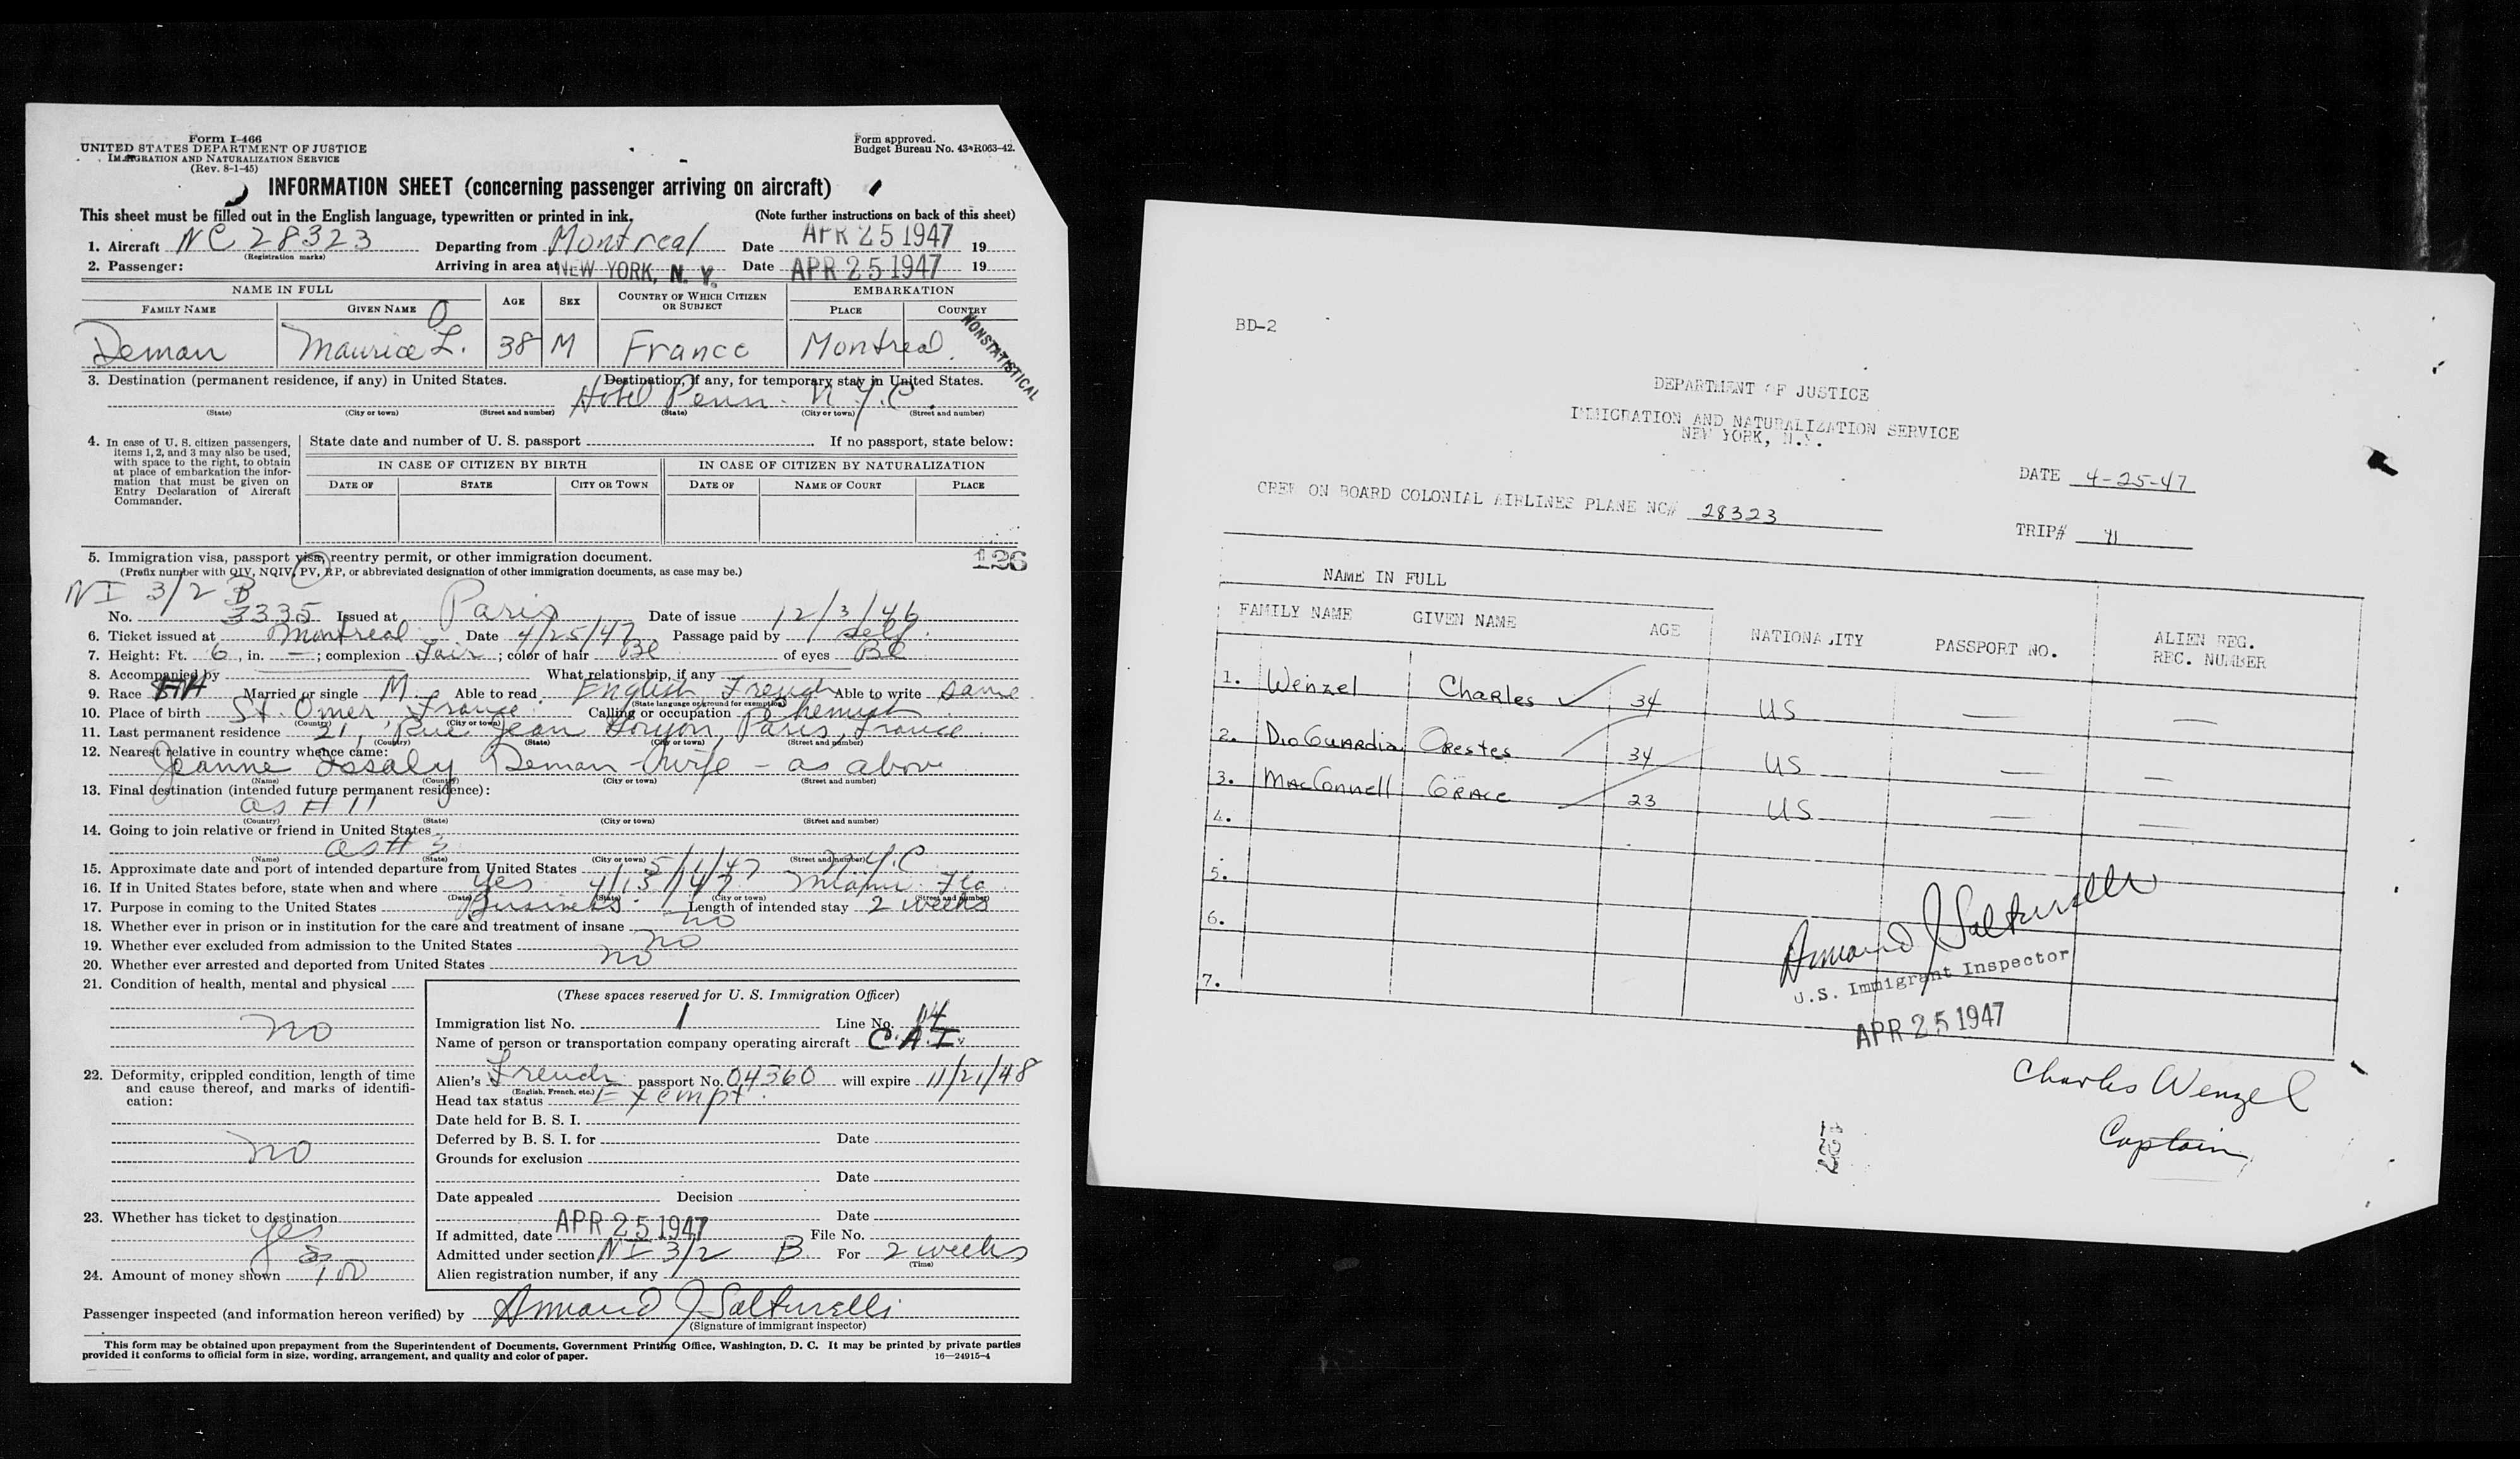 Form I-466
UNITED STATES DEPARTMENT OF JUSTICE
IMMIGRATION AND NATURALIZATION SERVICE
(Rev. 8-1-45)
Form approved.
Budget Bureau No. 43-R063-42.
INFORMATION SHEET (concerning passenger arriving on aircraft)
This sheet must be filled out in the English language, typewritten or printed in ink. (Note further instructions on back of this sheet)
1. Aircraft NC 28323 Departing from Montreal Date APR 25 1947 19
(Registration marks)
2. Passenger: Arriving in area at NEW YORK, N. Y. Date APR 25 1947 19
NAME IN FULL AGE SEX COUNTRY OF WHICH CITIZEN OR SUBJECT EMBARKATION
FAMILY NAME GIVEN NAME PLACE COUNTRY
Deman Maurice L. O 38 M France Montreal.
NONSTATISTICAL
3. Destination (permanent residence, if any) in United States. Destination, if any, for temporary stay in United States.
Hotel Penn. N.Y.C.
(State) (City or town) (Street and number) (State) (City or town) (Street and number)
4. In case of U. S. citizen passengers, items 1, 2, and 3 may also be used, with space to the right, to obtain at place of embarkation the information that must be given on Entry Declaration of Aircraft Commander.
State date and number of U. S. passport If no passport, state below:
IN CASE OF CITIZEN BY BIRTH IN CASE OF CITIZEN BY NATURALIZATION
DATE OF STATE CITY OR TOWN DATE OF NAME OF COURT PLACE
5. Immigration visa, passport visa, reentry permit, or other immigration document. 126
(Prefix number with QIV, NQIV, PV, RP, or abbreviated designation of other immigration documents, as case may be.)
NI 3/2 B
No. 3335 Issued at Paris Date of issue 12/3/46
6. Ticket issued at Montreal Date 4/25/47 Passage paid by self.
7. Height: Ft. 6, in. —; complexion Fair; color of hair Bl of eyes Bl
8. Accompanied by What relationship, if any
9. Race Married or single M. Able to read English French Able to write same
(State language or ground for exemption)
10. Place of birth St. Omer, France Calling or occupation Chemist
(Country) (City or town)
11. Last permanent residence 21, Rue Jean Paris, France.
(Country) (State) (City or town) (Street and number)
12. Nearest relative in country whence came:
Jeanne Deman - Wife - as above
(Name) (Country) (City or town) (Street and number)
13. Final destination (intended future permanent residence):
as # 11
(Country) (State) (City or town) (Street and number)
14. Going to join relative or friend in United States
as # 3
(Name) (State) (City or town) (Street and number)
15. Approximate date and port of intended departure from United States 5/1/47 N.Y.C
16. If in United States before, state when and where Yes 4/13/47 Miami Fla
(Date) (State) (City or town) (Street and number)
17. Purpose in coming to the United States Business. Length of intended stay 2 weeks
18. Whether ever in prison or in institution for the care and treatment of insane no
19. Whether ever excluded from admission to the United States no
20. Whether ever arrested and deported from United States no
21. Condition of health, mental and physical
no
22. Deformity, crippled condition, length of time and cause thereof, and marks of identification:
no
23. Whether has ticket to destination
yes
24. Amount of money shown
(These spaces reserved for U. S. Immigration Officer)
Immigration list No. 1 Line No. 14
Name of person or transportation company operating aircraft C.A.I.
Alien's French passport No. 04360 will expire 11/21/48
(English, French, etc.)
Head tax status Exempt.
Date held for B. S. I.
Deferred by B. S. I. for Date
Grounds for exclusion
Date
Date appealed Decision
Date
If admitted, date APR 25 1947 File No.
Admitted under section NI 3/2 B For 2 weeks
(Time)
Alien registration number, if any
Passenger inspected (and information hereon verified) by Armand J Salturelli
(Signature of immigrant inspector)
This form may be obtained upon prepayment from the Superintendent of Documents, Government Printing Office, Washington, D. C. It may be printed by private parties
provided it conforms to official form in size, wording, arrangement, and quality and color of paper. 16—24915-4
BD-2
DEPARTMENT OF JUSTICE
IMMIGRATION AND NATURALIZATION SERVICE
NEW YORK, N.Y.
DATE 4-25-47
CREW ON BOARD COLONIAL AIRLINES PLANE NC# 28323
TRIP#
NAME IN FULL
FAMILY NAME GIVEN NAME AGE NATIONALITY PASSPORT NO. ALIEN REG. REC. NUMBER
1. Wenzel Charles 34 US — —
2. DioGuardia Orestes 34 US — —
3. MacConnell Grace 23 US — —
4.
5.
6.
7.
Armand J Salturelli
U.S. Immigrant Inspector
APR 25 1947
Charles Wenzel
Captain
127